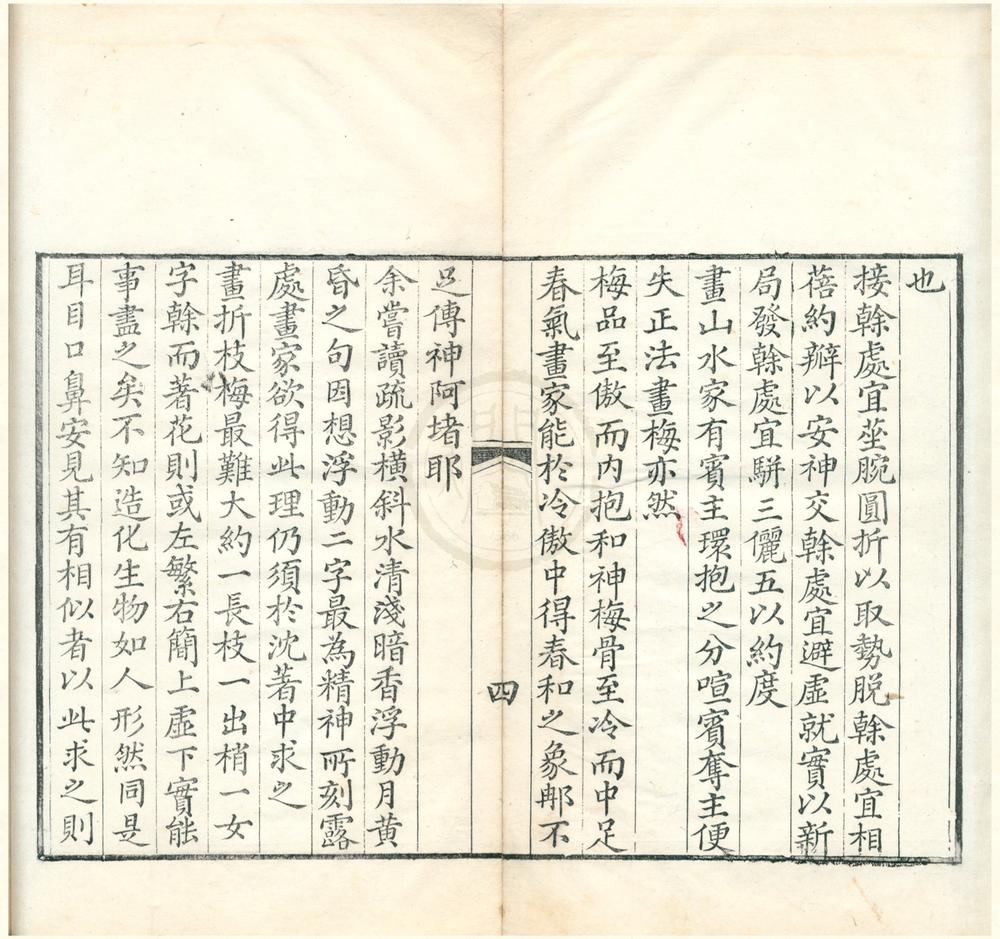 也
接榦處宜莝腕圓折以取勢脱榦處宜相
蓓約辧以安神交榦處宜避虛就實以新
局發榦處宜駢三儷五以約度
畫山水家有賓主環抱之分喧賓奪主便
失正法畫梅亦然
梅品至傲而内抱和神梅骨至冷而中足
春氣畫家能於冷傲中得春和之象郍不
四
足傳神阿堵耶
余嘗讀疏影橫斜水清淺暗香浮動月黃
昏之句因想浮動二字最為精神所刻露
處畫家欲得此理仍須於沈著中求之
畫折枝梅最難大約一長枝一出梢一女
字榦而著花則或左繁右簡上虛下實能
事盡之矣不知造化生物如人形然同是
耳目口鼻安見其有相似者以此求之則